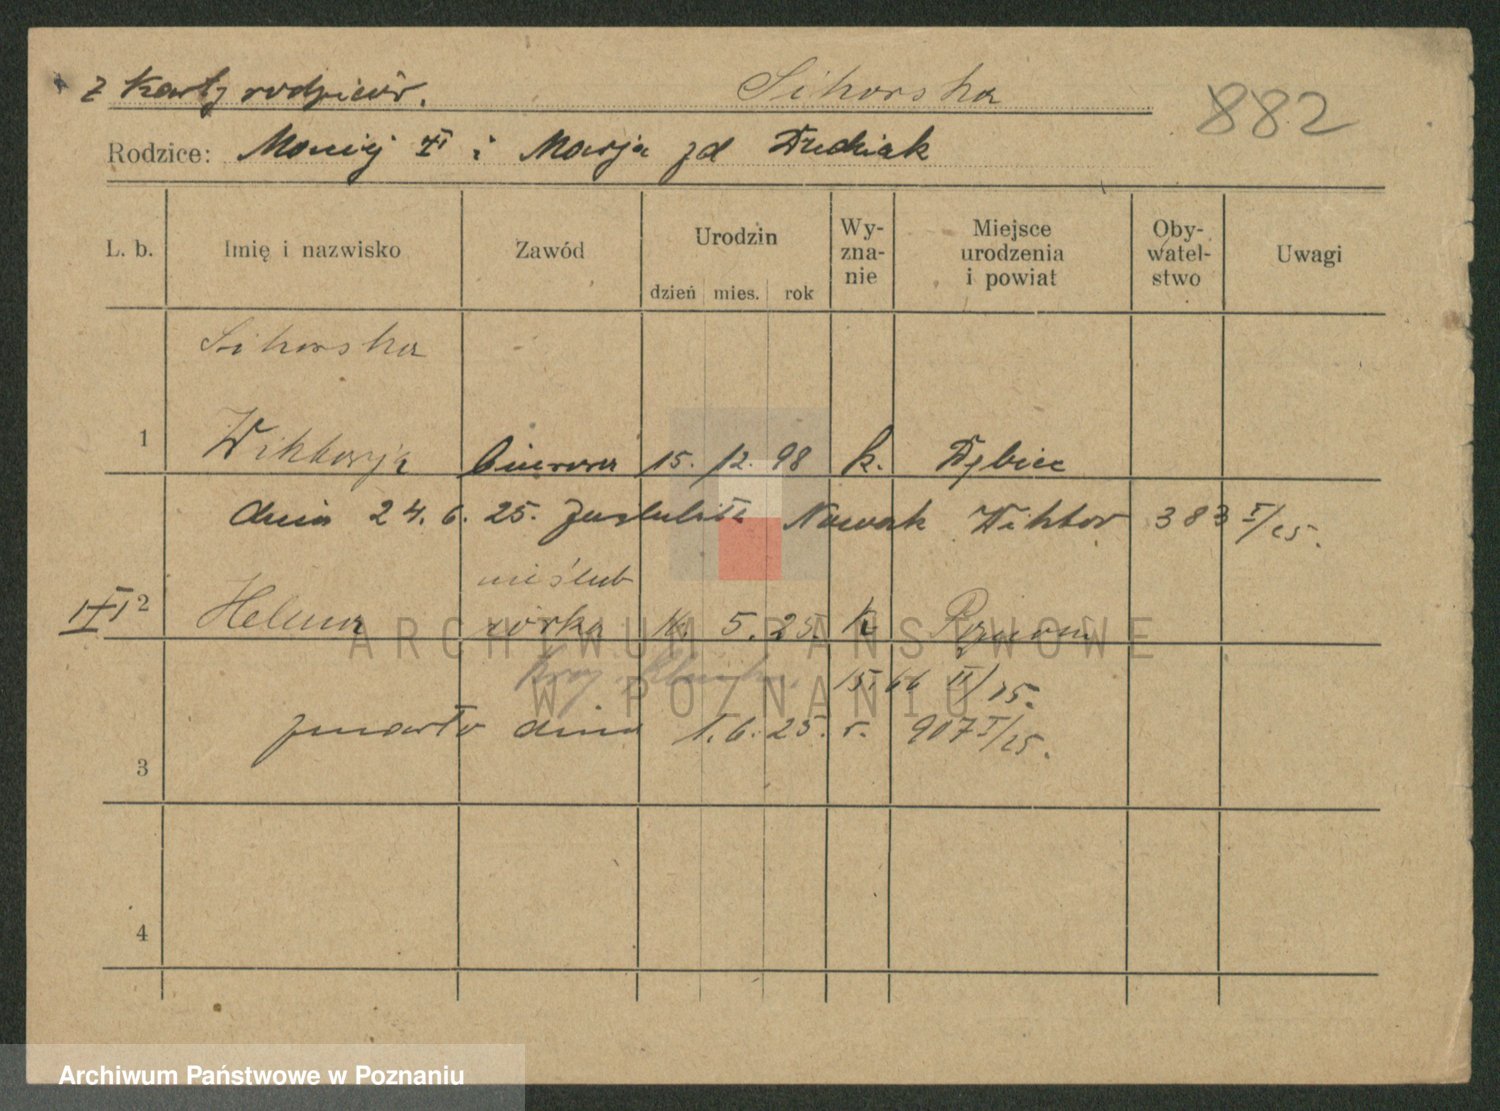 z karty rodziców. Sikorska
882
Rodzice: Maciej VI i Marja zd Dudziak
L. b. Imię i nazwisko Zawód Urodzin dzień mies. rok Wy-zna-nie Miejsce urodzenia i powiat Oby-watel-stwo Uwagi
Sikorska
1 Wiktorja biurowa 15. 12. 98 k. Dębiec
dnia 24. 6. 25. zaślubiła Nowak Wiktor 383 I/25.
nieślub
2 Helena córka 5. 25. k
1566 II/25.
zmarła dnia 1. 6. 25. r. 907 I/25.
3
4
ARCHIWUM PAŃSTWOWE
W POZNANIU
Archiwum Państwowe w Poznaniu